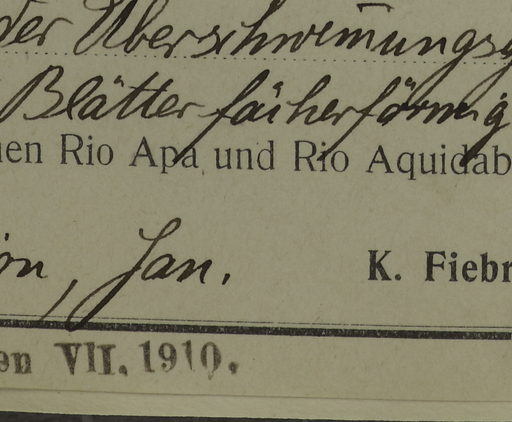 der Überschwem̄ungsg
Blätter fächerförmig
nen Rio Apa und Rio Aquidab
on, Jan. K. Fiebr
en VII. 1910.